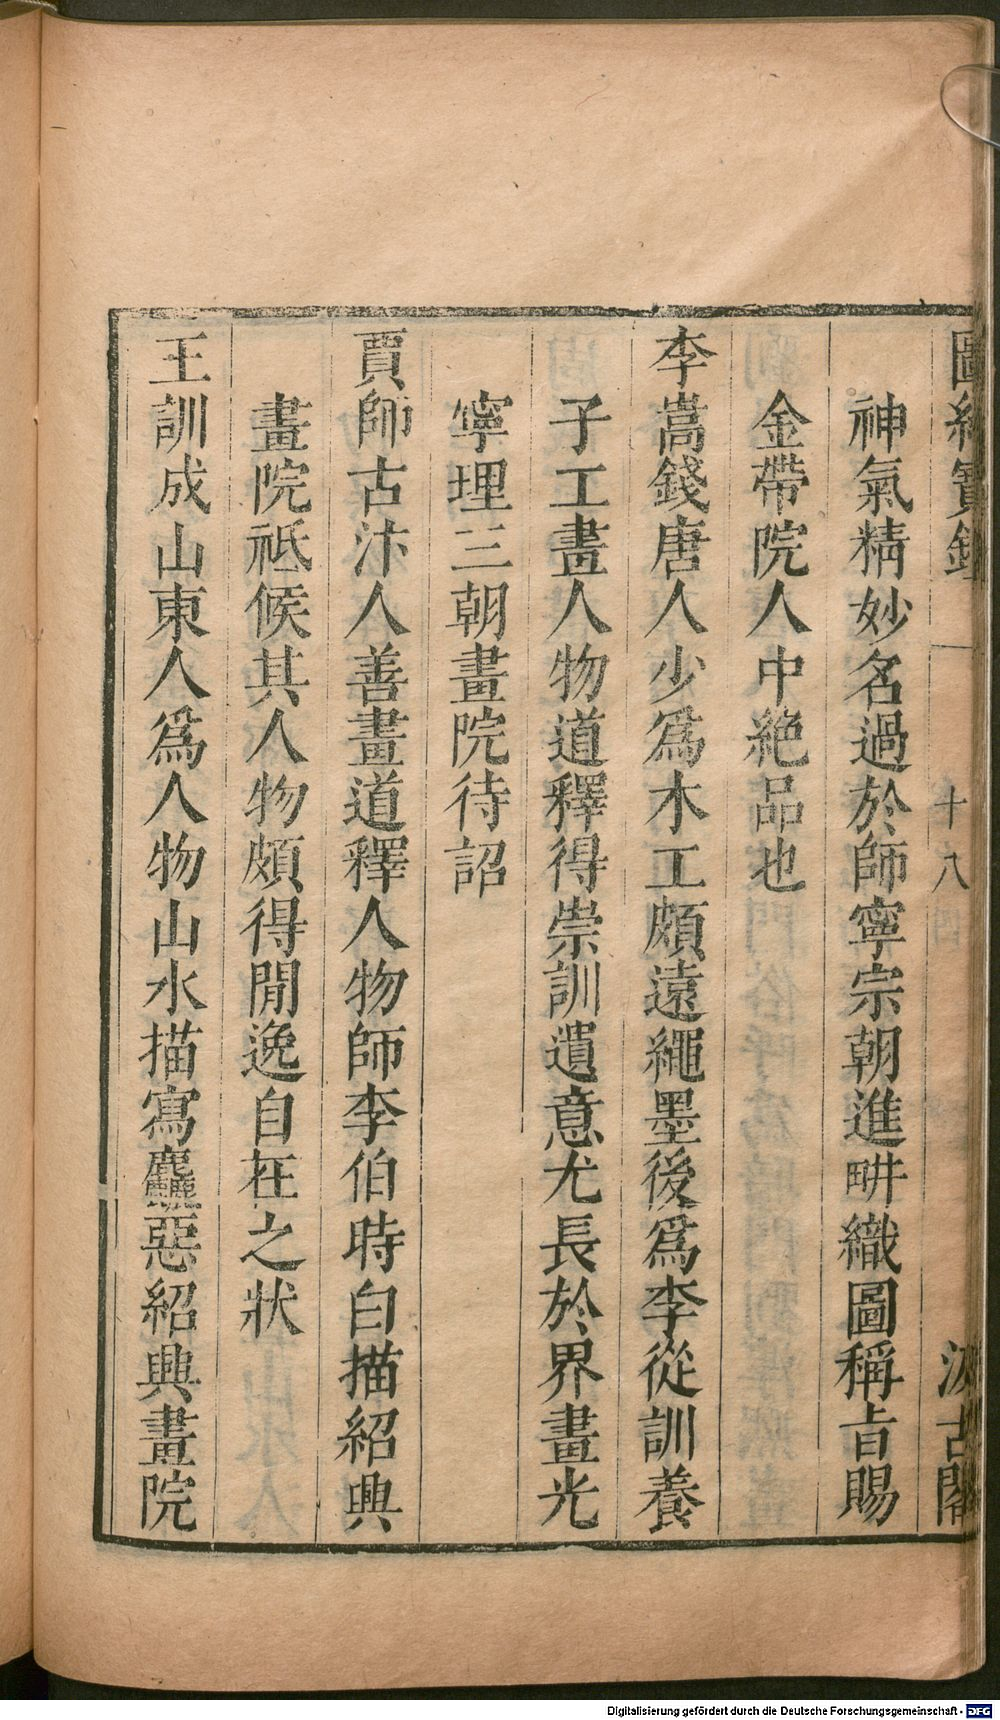 圖繪寶鑑 十八 汲古閣
神氣精妙名過於師寧宗朝進畊織圖稱旨賜
金帶院人中絶品也
李嵩錢唐人少爲木工頗遠繩墨後爲李從訓養
子工畫人物道釋得崇訓遺意尤長於界畫光
寧理三朝畫院待詔
賈師古汴人善畫道釋人物師李伯時白描紹興
畫院祗候其人物頗得閒逸自在之狀
王訓成山東人爲人物山水描寫麤惡紹興畫院
Digitalisierung gefördert durch die Deutsche Forschungsgemeinschaft - DFG